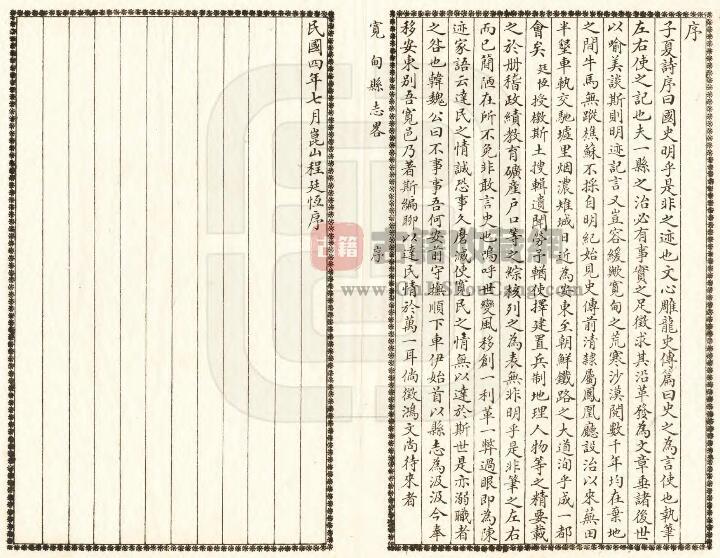 序
子夏詩序曰國史明乎是非之迹也文心雕龍史傳篇曰史之為言使也執筆
左右使之記也夫一縣之治必有事實之足徵求其沿革發為文章垂諸後世
以喻美談斯則明迹記言又豈容緩歟寬甸之荒寒沙漠閱數千年均在棄地
之間牛馬無蹤樵蘇不採自明紀始見史傳前清隸屬鳳凰廳設治以來蕪田
半墾車軌交馳墟里烟濃雉堞日近為安東至朝鮮鐵路之大道洵乎成一都
會矣廷恆授檄斯土搜輯遺聞勞予輶使擇建置兵制地理人物等之精要載
之於册稽政績教育礦產戶口等之綜核列之為表無非明乎是非筆之左右
而已簡陋在所不免非敢言史也嗚呼世變風移創一利革一弊過眼即為陳
迹家語云達民之情誠恐事久磨滅使寬民之情無以達於斯世是亦溺職者
之咎也韓魏公曰不事事吾何安前守撫順下車伊始首以縣志為汲汲今奉
移安東別吾寬邑乃著斯編聊以達民情於萬一耳倘徵鴻文尚待來者
寬甸縣志畧
序
民國四年七月崑山程廷恆序
古籍收藏網
www.GuJiShouCang.com